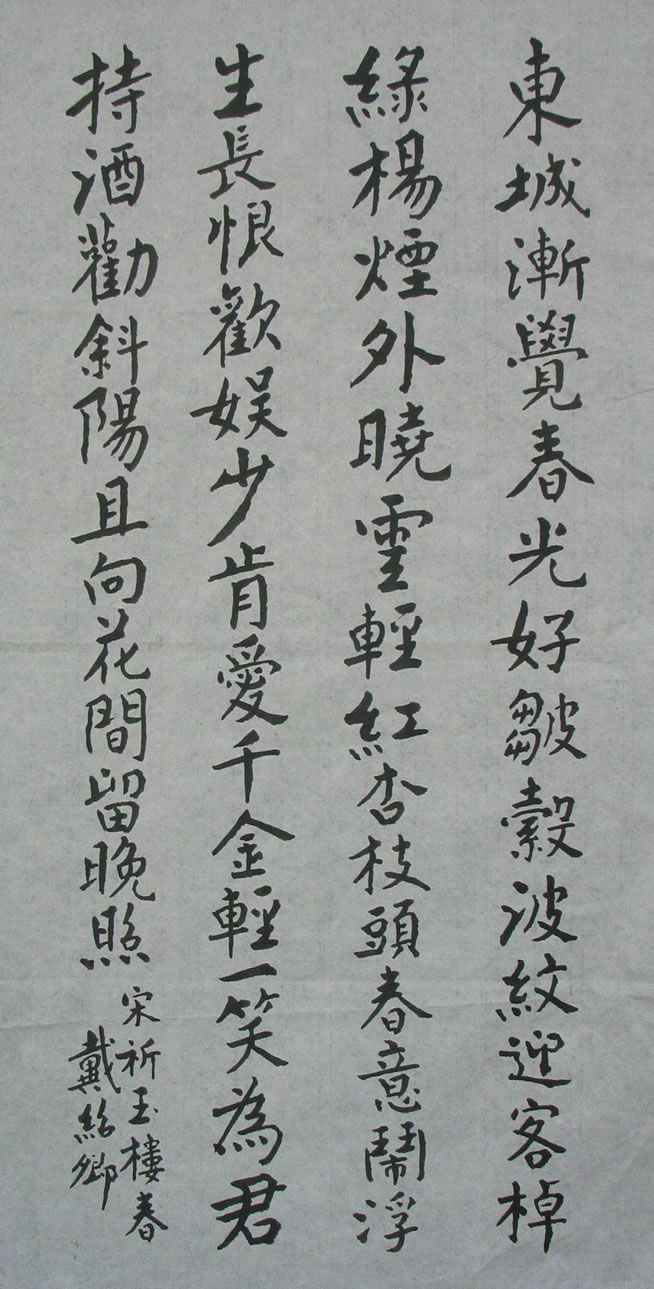 東城漸覺春光好皺縠波紋迎客棹
綠楊煙外曉雲輕紅杏枝頭春意鬧浮
生長恨歡娛少肯愛千金輕一笑為君
持酒勸斜陽且向花間留晚照
宋祈玉樓春
戴紹卿